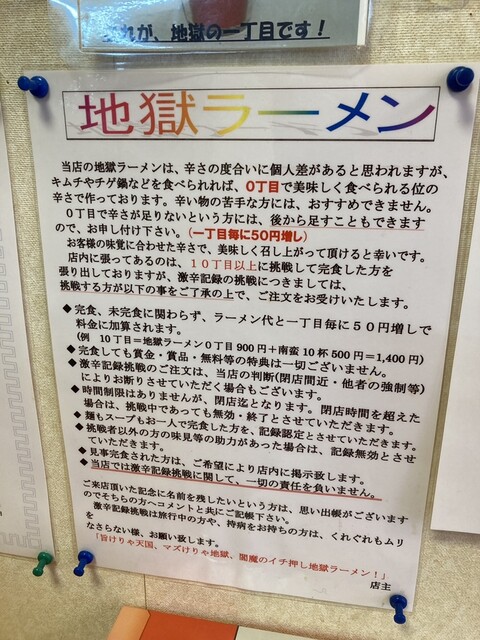 これが、地獄の一丁目です！
地獄ラーメン
当店の地獄ラーメンは、辛さの度合いに個人差があると思われますが、
キムチやチゲ鍋などを食べられれば、０丁目で美味しく食べられる位の
辛さで作っております。辛い物の苦手な方には、おすすめできません。
０丁目で辛さが足りないという方には、後から足すこともできます
ので、お申し付け下さい。（一丁目毎に50円増し）
お客様の味覚に合わせた辛さで、美味しく召し上がって頂けると幸いです。
店内に張ってあるのは、１０丁目以上に挑戦して完食した方を
張り出しておりますが、激辛記録の挑戦につきましては、
挑戦する方が以下の事をご了承の上で、ご注文をお受けいたします。
◆完食、未完食に関わらず、ラーメン代と一丁目毎に５０円増しで
料金に加算されます。
(例 10丁目＝地獄ラーメン０丁目900円＋南蛮10杯500円＝1,400円)
◆完食しても賞金・賞品・無料等の特典は一切ございません。
◆激辛記録挑戦のご注文は、当店の判断(閉店間近・他者の強制等)
によりお断りさせていただく場合もございます。
◆時間制限はありませんが、閉店迄となります。閉店時間を超えた
場合は、挑戦中であっても無効・終了とさせていただきます。
◆麺もスープもお一人で完食した方を、記録認定とさせていただきます。
◆挑戦者以外の方の味見等の助力があった場合は、記録無効とさせ
ていただきます。
◆見事完食された方は、ご希望により店内に掲示致します。
◆当店では激辛記録挑戦に関して、一切の責任を負いません。
ご来店頂いた記念に名前を残したいという方は、思い出帳がございます
のでそちらの方へコメントと共にご記帳下さい。
激辛記録挑戦は旅行中の方や、持病をお持ちの方は、くれぐれもムリ
なさらない様、お願い致します。
「旨けりゃ天国、マズけりゃ地獄、閻魔のイチ押し地獄ラーメン！」
店主